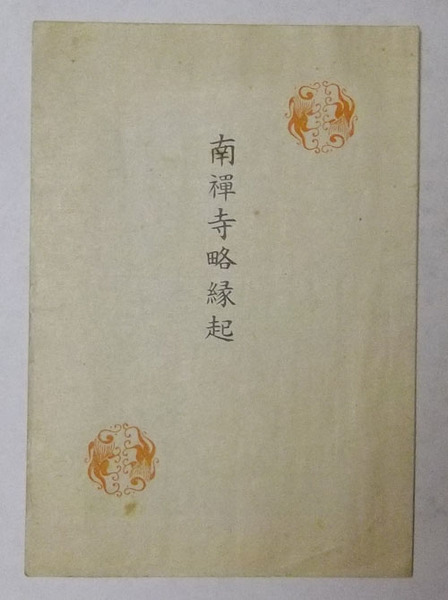 南禪寺略緣起